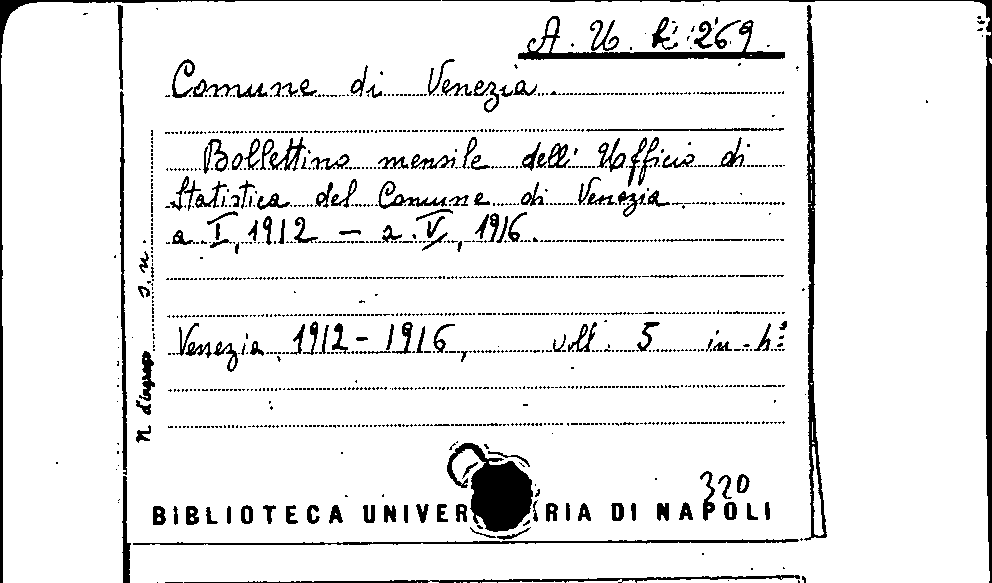 A. U. R. 269
Comune di Venezia.
Bollettino mensile dell' Ufficio di
Statistica del Comune di Venezia.
a. I, 1912 — a. V, 1916.
Venezia, 1912-1916, voll. 5 in-4º
N. d'ingresso s. n.
320
BIBLIOTECA UNIVER RIA DI NAPOLI